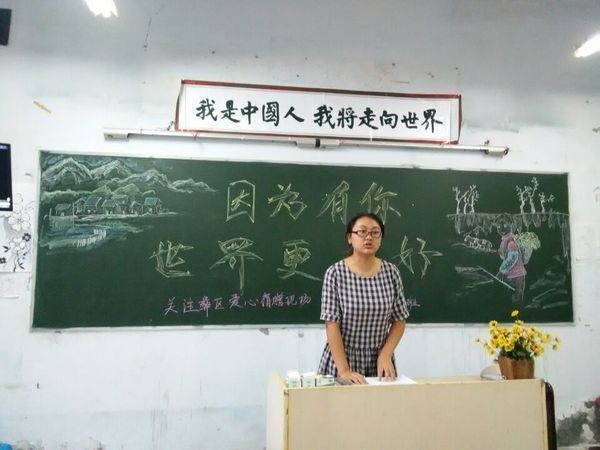 我是中國人 我將走向世界
因为有你
世界更 好
关注 区爱心捐赠现场 班